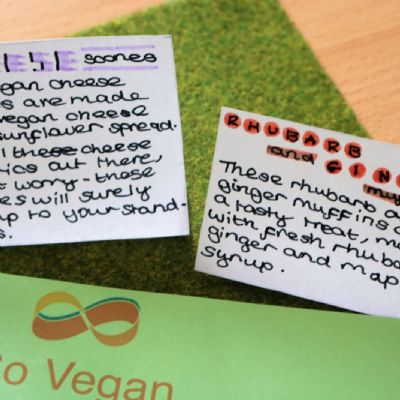 ESE scones
egan cheese
s are made
vegan cheese
sunflower spread.
l these cheese
ics out there,
t worry - these
es will surely
up to your stand-
s.
RHUBARB
and GIN
mu
These rhubarb a
ginger muffins a
a tasty treat, ma
with fresh rhuba
ginger and map
syrup.
Go Vegan